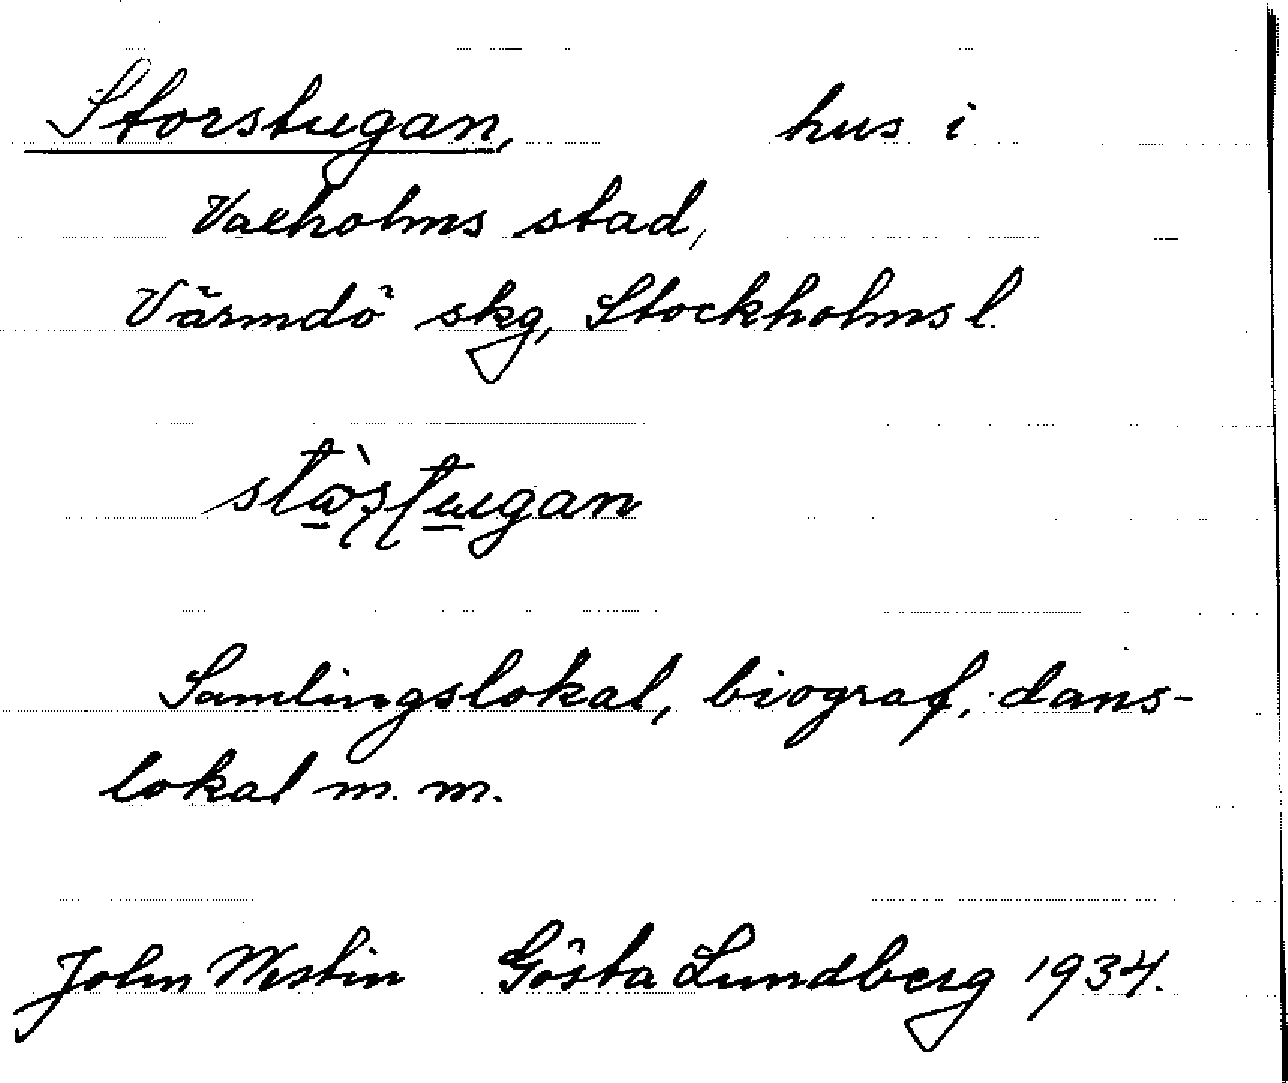 Storstugan, hus i
Vaxholms stad,
Värmdö skg, Stockholms l.
Samlingslokal, biograf, dans-
lokal m. m.
John Westin Gösta Lundberg 1934.